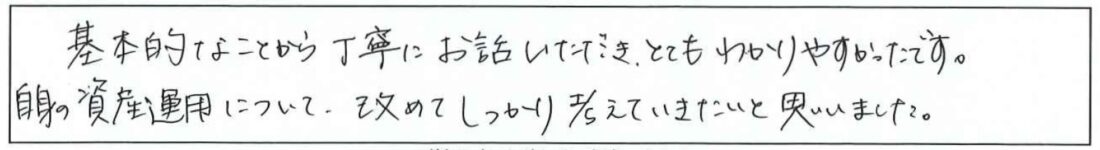 基本的なことから丁寧にお話いただき、とてもわかりやすかったです。
自身の資産運用について、改めてしっかり考えていきたいと思いました。